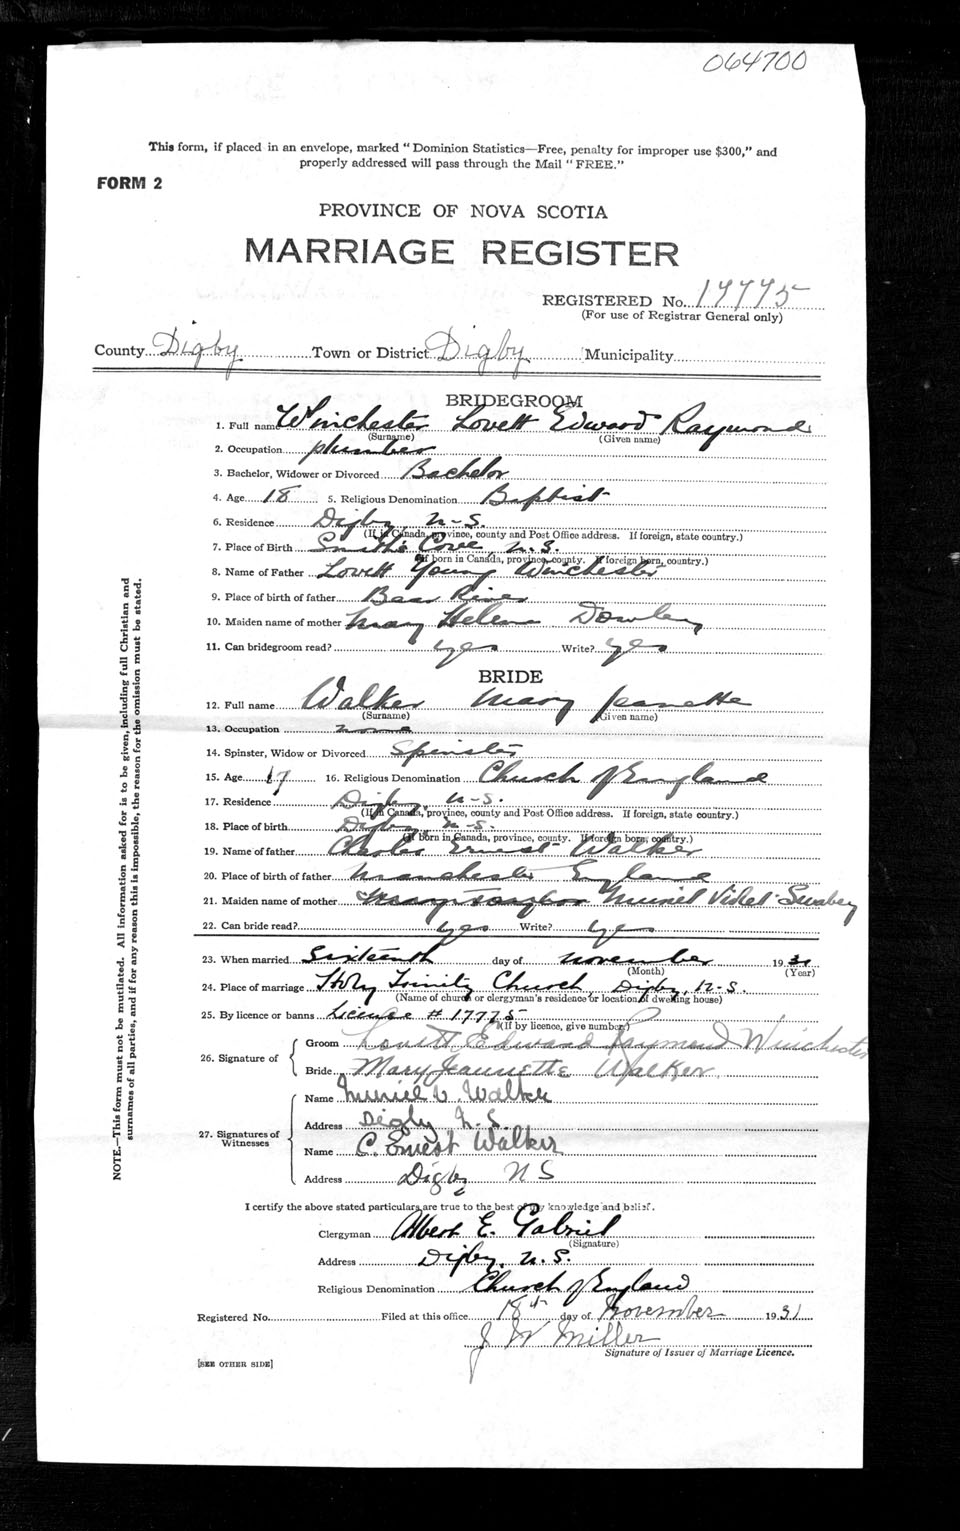 064700
This form, if placed in an envelope, marked "Dominion Statistics—Free, penalty for improper use $300," and
properly addressed will pass through the Mail "FREE."
FORM 2
PROVINCE OF NOVA SCOTIA
MARRIAGE REGISTER
REGISTERED No. 17775
(For use of Registrar General only)
County Digby Town or District Digby Municipality
BRIDEGROOM
1. Full name Winchester Lovett Edward Raymond
(Surname) (Given name)
2. Occupation plumber
3. Bachelor, Widower or Divorced Bachelor
4. Age 18 5. Religious Denomination Baptist
6. Residence Digby, N.S.
(If in Canada, province, county and Post Office address. If foreign, state country.)
7. Place of Birth Smith's Cove, N.S.
(If born in Canada, province, county. If foreign born, country.)
8. Name of Father Lovett Young Winchester
9. Place of birth of father Bear River
10. Maiden name of mother Mary Helena
11. Can bridegroom read? yes Write? yes
BRIDE
12. Full name Walker Mary Jeanette
(Surname) (Given name)
13. Occupation none
14. Spinster, Widow or Divorced Spinster
15. Age 17 16. Religious Denomination Church of England
17. Residence Digby, N.S.
(If in Canada, province, county and Post Office address. If foreign, state country.)
18. Place of birth Digby N.S.
(If born in Canada, province, county. If foreign born, country.)
19. Name of father Charles Ernest Walker
20. Place of birth of father Manchester England
21. Maiden name of mother Muriel Violet
22. Can bride read? yes Write? yes
23. When married Sixteenth day of November 1931
(Month) (Year)
24. Place of marriage Holy Trinity Church, Digby, N.S.
(Name of church or clergyman's residence or location of dwelling house)
25. By licence or banns License # 17775
(If by licence, give number)
26. Signature of
Groom Lovett Edward Raymond Winchester
Bride Mary Jeannette Walker
27. Signatures of Witnesses
Name Muriel V. Walker
Address Digby N.S.
Name C. Ernest Walker
Address Digby N S
I certify the above stated particulars are true to the best of my knowledge and belief.
Clergyman Albert E. Gabriel
(Signature)
Address Digby, N.S.
Religious Denomination Church of England
Registered No. Filed at this office 18th day of November 1931
J W Miller
Signature of Issuer of Marriage Licence.
[SEE OTHER SIDE]
NOTE.—This form must not be mutilated. All information asked for is to be given, including full Christian and
surnames of all parties, and if for any reason this is impossible, the reason for the omission must be stated.